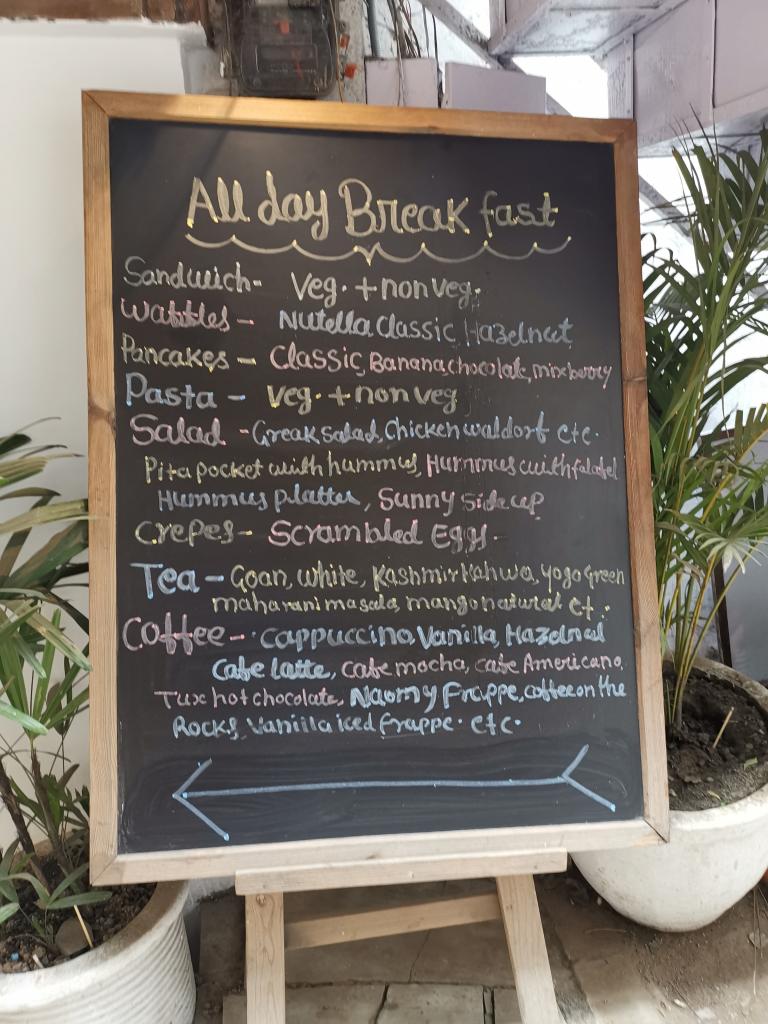 All day Break fast
Sandwich- Veg. + non veg.
Waffles - Nutella classic, Hazelnut
Pancakes - Classic, Banana chocolate, mix berry
Pasta - Veg. + non veg
Salad - Greak salad, Chicken waldorf etc.
Pita pocket with hummus, Hummus with falafel
Hummus platter, Sunny side up
Crepes- Scrambled Eggs-
Tea - Goan, white, Kashmir Kahwa, yogo Green
maharani masala, mango natural et.
Coffee - cappuccino, Vanilla, Hazelnut
Cafe latte, cafe mocha, cafe Americano,
Tux hot chocolate, Naomy Frappe, coffee on the
Rocks, Vanilla iced frappe. etc.